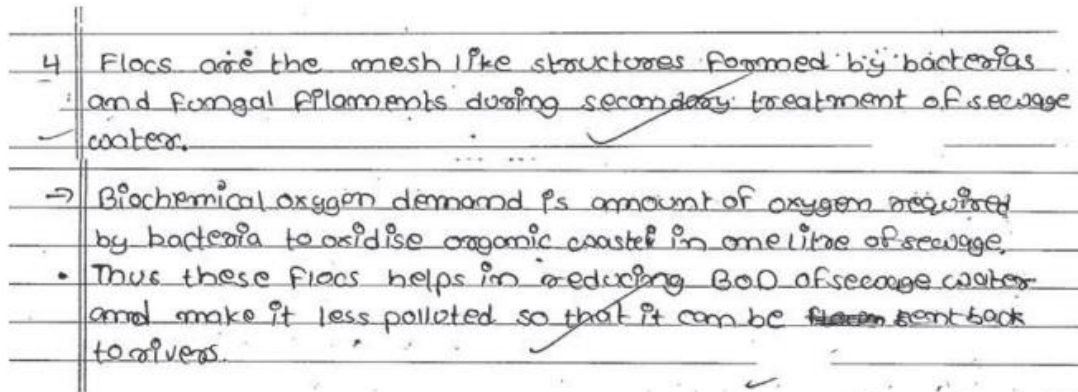 4 Flocs are the mesh like structures formed by bacterias
and fungal filaments during secondary treatment of sewage
water.
→ Biochemical oxygen demand is amount of oxygen required
by bacteria to oxidise organic waste in one litre of sewage.
• Thus these flocs helps in reducing BOD of sewage water
and make it less polluted so that it can be sent back
to rivers.